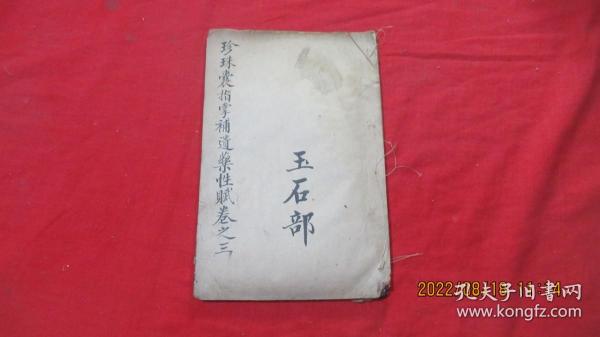 珍珠囊指掌補遺藥性賦卷之三
玉石部
孔夫子旧書网
www.kongfz.com